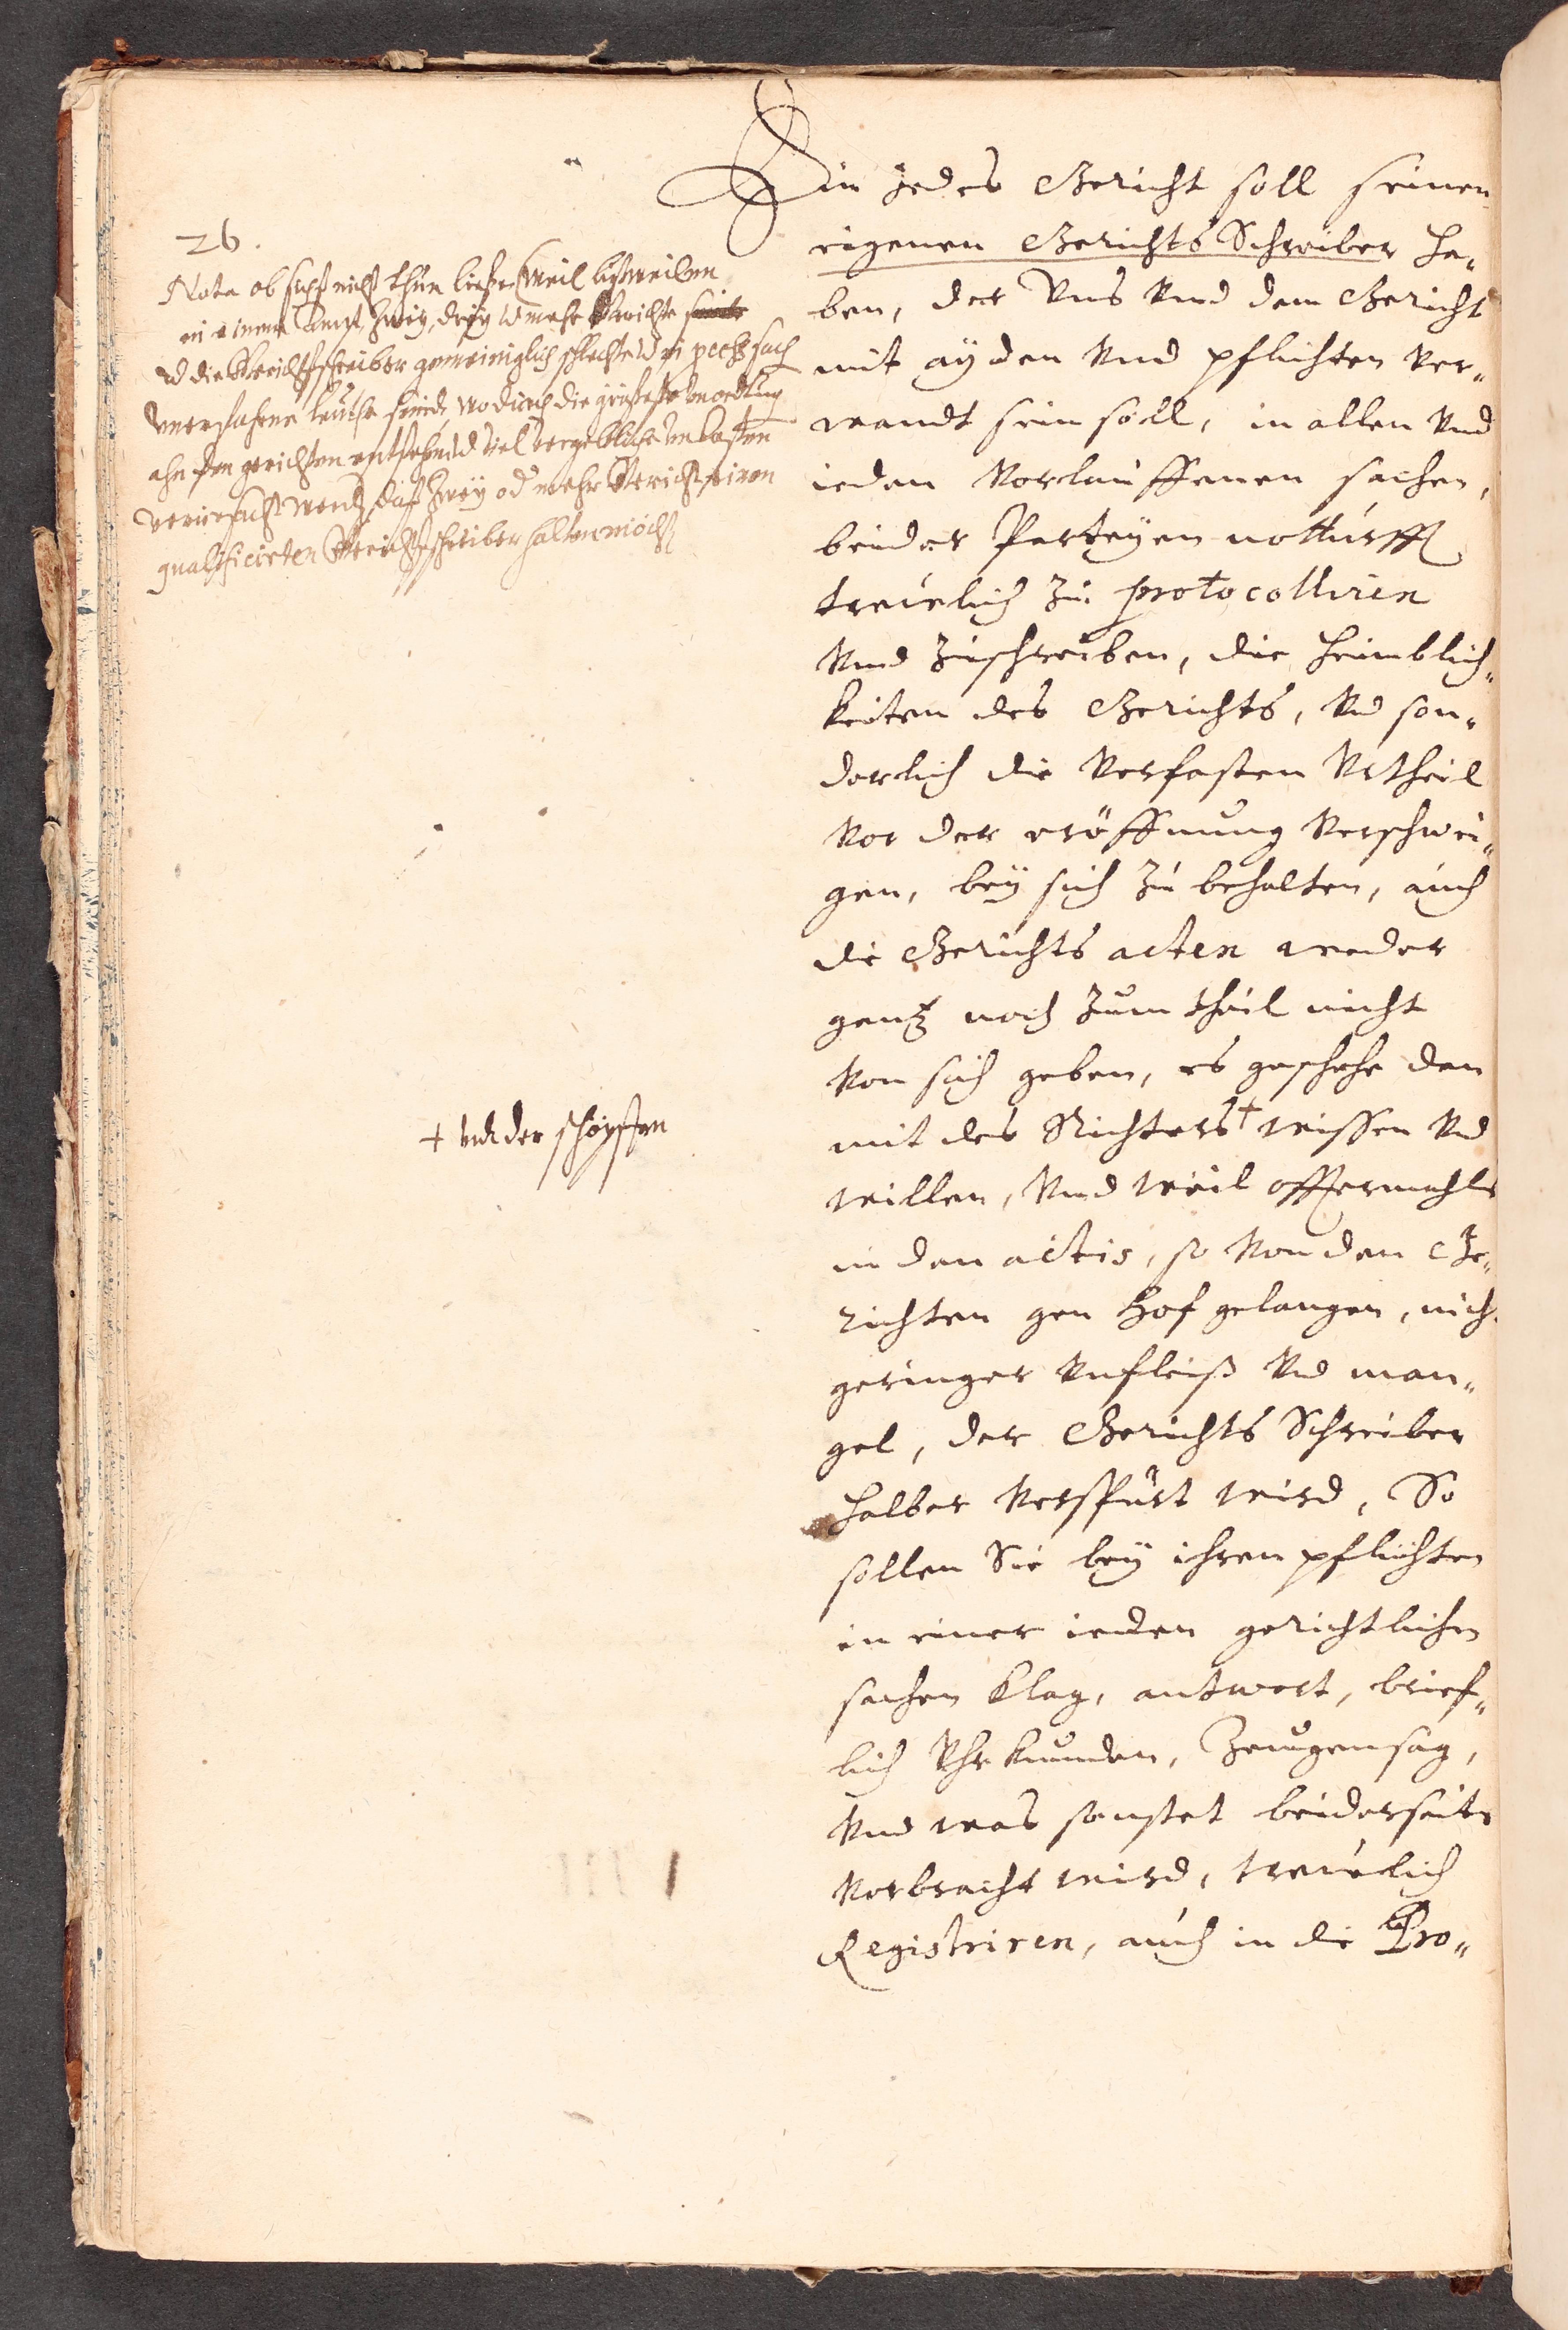 26.
Nota ob sichs nicht thun liesse, weil bißweilen
in einem Ampt, zwey, drey vd mehr Gerichte seindt
vd die Gerichtsschreiber gemeiniglich schlechte vd in
vnerfahrne leuthe seind, wodurch die gröste vnordnung
ahn den gerichten entstehn vnd viel vergebliche vnkosten
verursacht werde, daß zwey od mehr Gericht einen
qualificirten Gerichtsschreiber halten möchten
Ein jedes Gericht soll seinen
eigenen Gerichts Schreiber ha„
ben, der Vns Vnd dem Gericht
mit ayden Vnd pflichten Ver„
wandt sein soll, in allen Vnd
ieden Vorlauffenen sachen,
beider Parteyen notturfft
treulich zu protocolliren
Vnd zuschreiben, die heimblich„
keiten des Gerichts, Vnd son„
derlich die Verfasten Vrtheil
Vor der eröffnung Verschwei„
gen, bey sich zu behalten, auch
die Gerichts acten weder
gantz noch zum theil nicht
Von sich geben, es geschehe dan
mit des Richters + wissen Vnd
+ vndt der schöpffen
willen, Vnd weil offtermahls
in den actis, so Von den Ge„
richten gen Hof gelangen, nicht
geringer Vnfleiß Vnd man„
gel, der Gerichts Schreiber
halber Verspürt wird, So
sollen Sie bey ihren pflichten
in einer ieden gerichtlichen
sachen klag, antwort, brief„
lich Vhrkunden, Zeugensag,
Vnd was sonstet beiderseits
Vorbracht wird, treulich
Registriren, auch in die Pro„